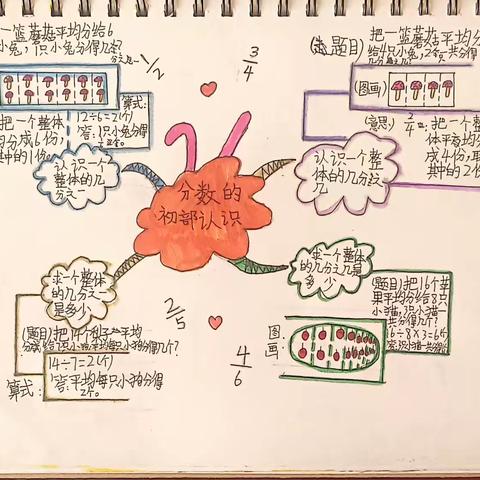 一篮蘑菇平均分给6
小兔,1只小兔分得几
分之一
1/2
算式:
12÷6=2(个)
答:1只小兔分得
2个。
把一个整体
均分成6份,
其中的1份。
认识一个
整体的几
分之一
3/4
(题目)
把一篮蘑菇平均分
给4只小兔,2只一共分得
(图画)
(意思)
2/4
把一个整
体平均分
成4份,取
其中的2份
认识一个整
体的几分之
几
分数的
初部认识
求一个整体
的几分之一
是多少
(题目)把14个
平均
14÷7=2(个)
答:平均每只小狗分得
2个。
算式:
2/5
4/6
求一个整体
的几分之几是
多少
图
画
(题目)把16个苹
果平均分给8只
小猫,3只小猫一
共分得几个?
16÷8×3=6(个)